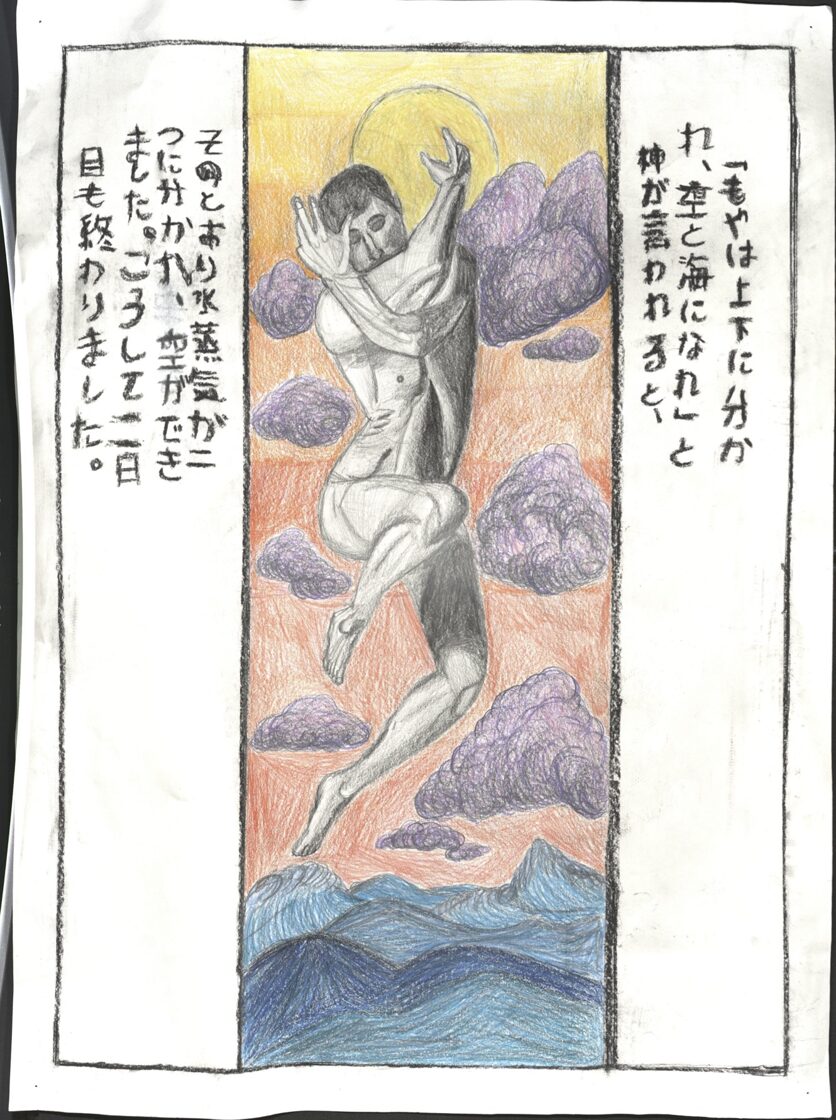 「もやは上下に分か
れ、空と海になれ」と
神が言われると、
そのとおり水蒸気が二
つに分かれ、空ができ
ました。こうして二日
目も終わりました。